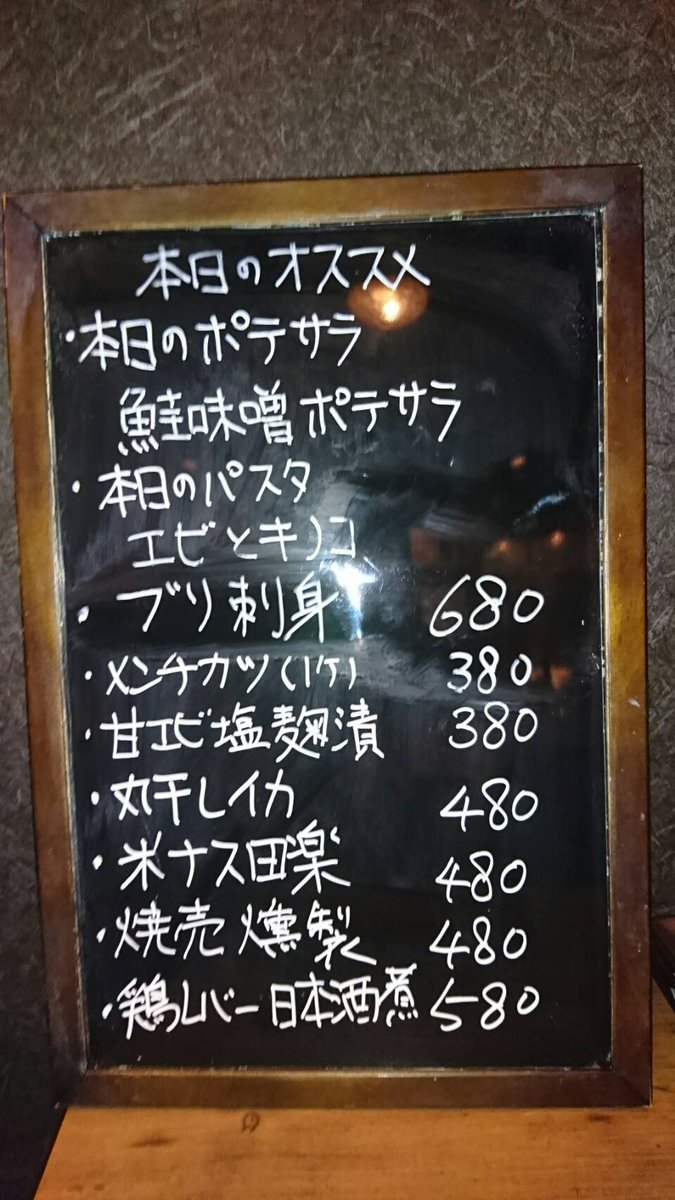 本日のオススメ
・本日のポテサラ
鮭味噌ポテサラ
・本日のパスタ
エビとキノコ
・ブリ刺身 680
・メンチカツ(1ケ) 380
・甘エビ塩麹漬 380
・丸干しイカ 480
・米ナス田楽 480
・焼売 燻製 480
・鶏レバー日本酒煮 580